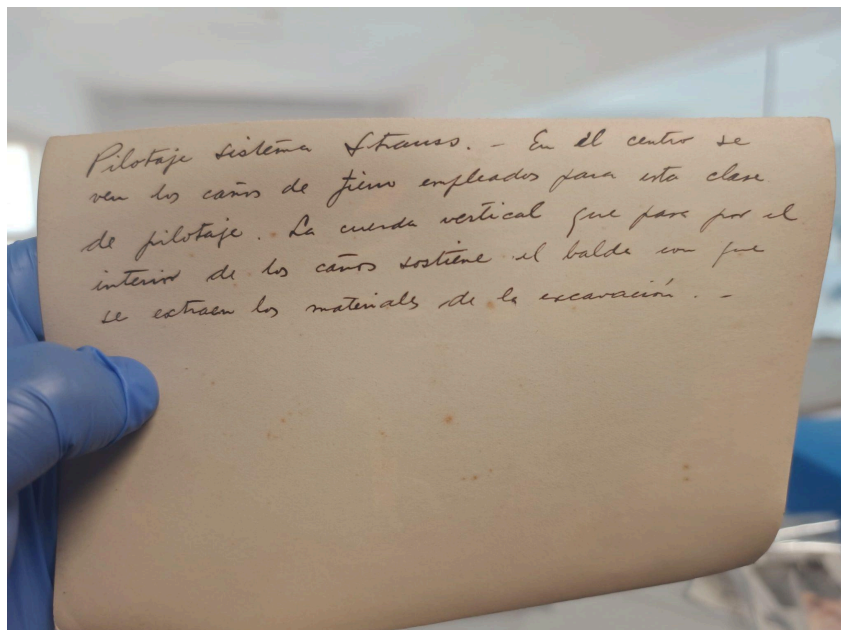 Pilotaje sistema Strauss. - En el centro se
ven los caños de fierro empleados para esta clase
de pilotaje. La cuerda vertical que pasa por el
interior de los caños sostiene el balde con que
se extraen los materiales de la excavación. -